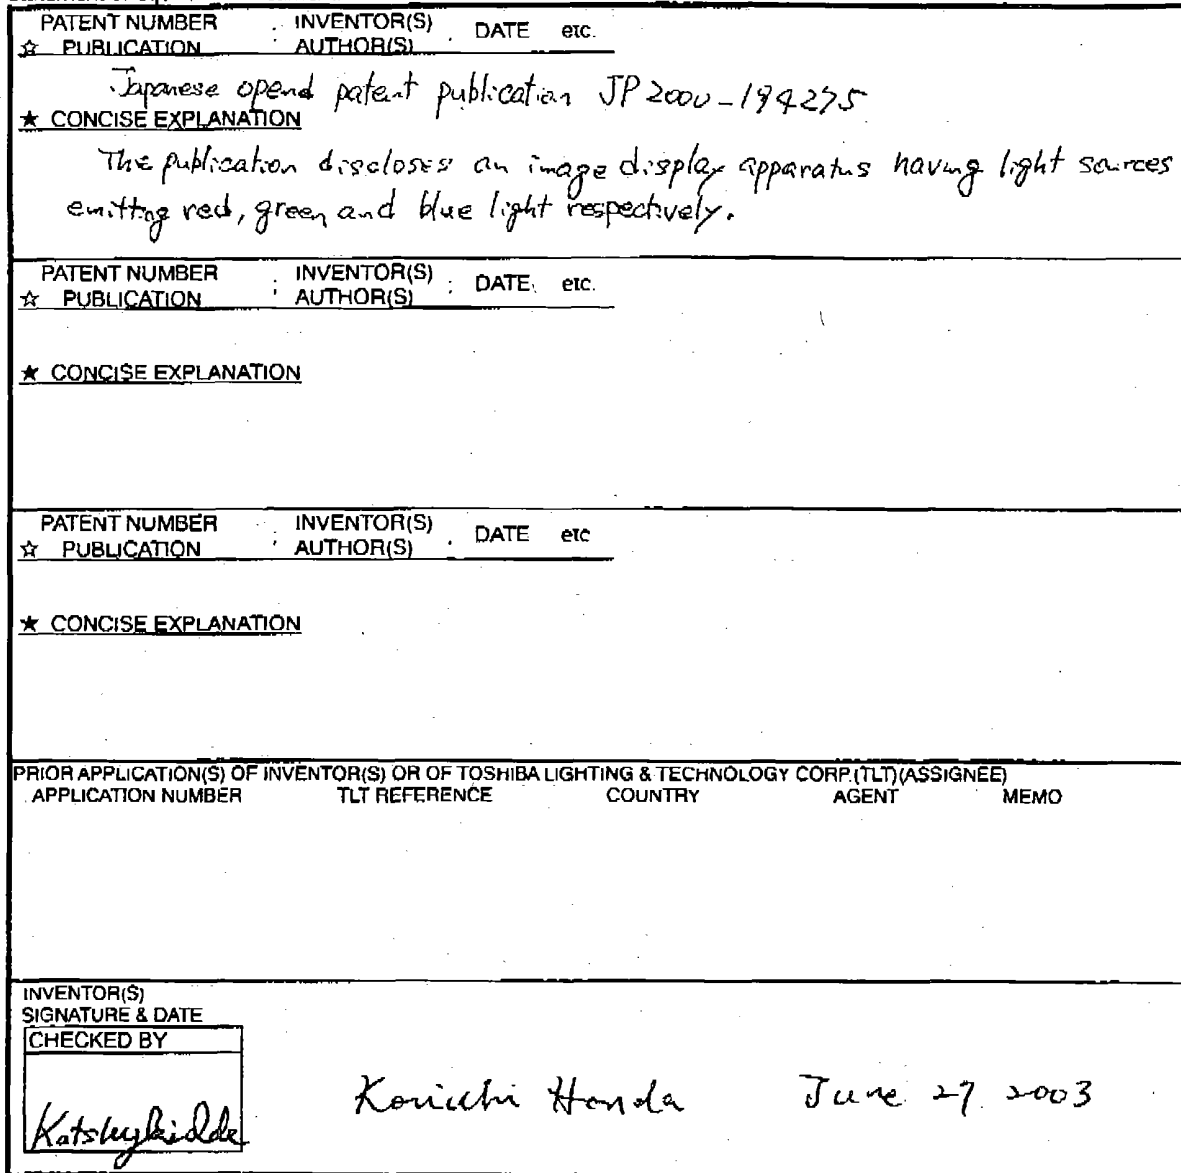 PATENT NUMBER ; INVENTOR(S) ; DATE etc.
☆ PUBLICATION AUTHOR(S)
Japanese opend patent publication JP2000-194275
★ CONCISE EXPLANATION
The publication discloses an image display apparatus having light sources
emitting red, green and blue light respectively.
PATENT NUMBER ; INVENTOR(S) ; DATE etc.
☆ PUBLICATION AUTHOR(S)
★ CONCISE EXPLANATION
PATENT NUMBER ; INVENTOR(S) . DATE etc
☆ PUBLICATION AUTHOR(S)
★ CONCISE EXPLANATION
PRIOR APPLICATION(S) OF INVENTOR(S) OR OF TOSHIBA LIGHTING & TECHNOLOGY CORP.(TLT)(ASSIGNEE)
APPLICATION NUMBER TLT REFERENCE COUNTRY AGENT MEMO
INVENTOR(S)
SIGNATURE & DATE
CHECKED BY
Honda June 27. 2003